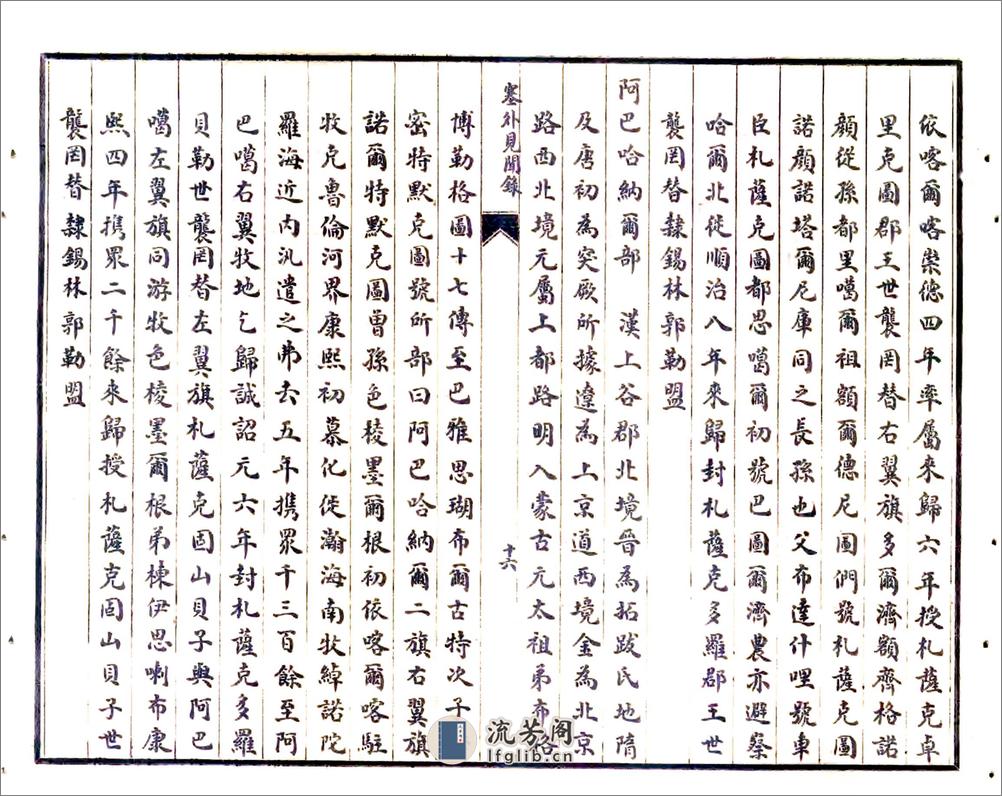 依喀爾喀崇德四年率屬來歸六年授札薩克卓
里克圖郡王世襲罔替右翼旗多爾濟額齊格諾
顏從孫都里噶爾祖額爾德尼圖們號札薩克圖
諾顏諾塔爾尼庫同之長孫也父布達什哩號車
臣札薩克圖都思噶爾初號巴圖爾濟農亦避察
哈爾北徙順治八年來歸封札薩克多羅郡王世
襲罔替隸錫林郭勒盟
阿巴哈納爾部 漢上谷郡北境晉為拓跋氏地隋
及唐初為突厥所據遼為上京道西境金為北京
路西北境元屬上都路明入蒙古元太祖弟布格
塞外見聞錄
十六
博勒格圖十七傳至巴雅思瑚布爾古特次子
密特默克圖號所部曰阿巴哈納爾二旗右翼旗
諾爾特默克圖曾孫色稜墨爾根初依喀爾喀駐
牧克魯倫河界康熙初慕化徙瀚海南牧綽諾陀
羅海近內汛遣之弗去五年攜眾千三百餘至阿
巴噶右翼牧地乞歸誠詔元六年封札薩克多羅
貝勒世襲罔替左翼旗札薩克固山貝子與阿巴
噶左翼旗同游牧色稜墨爾根弟棟伊思喇布康
熙四年攜眾二千餘來歸授札薩克固山貝子世
襲罔替隸錫林郭勒盟
流芳阁
lfglib.cn